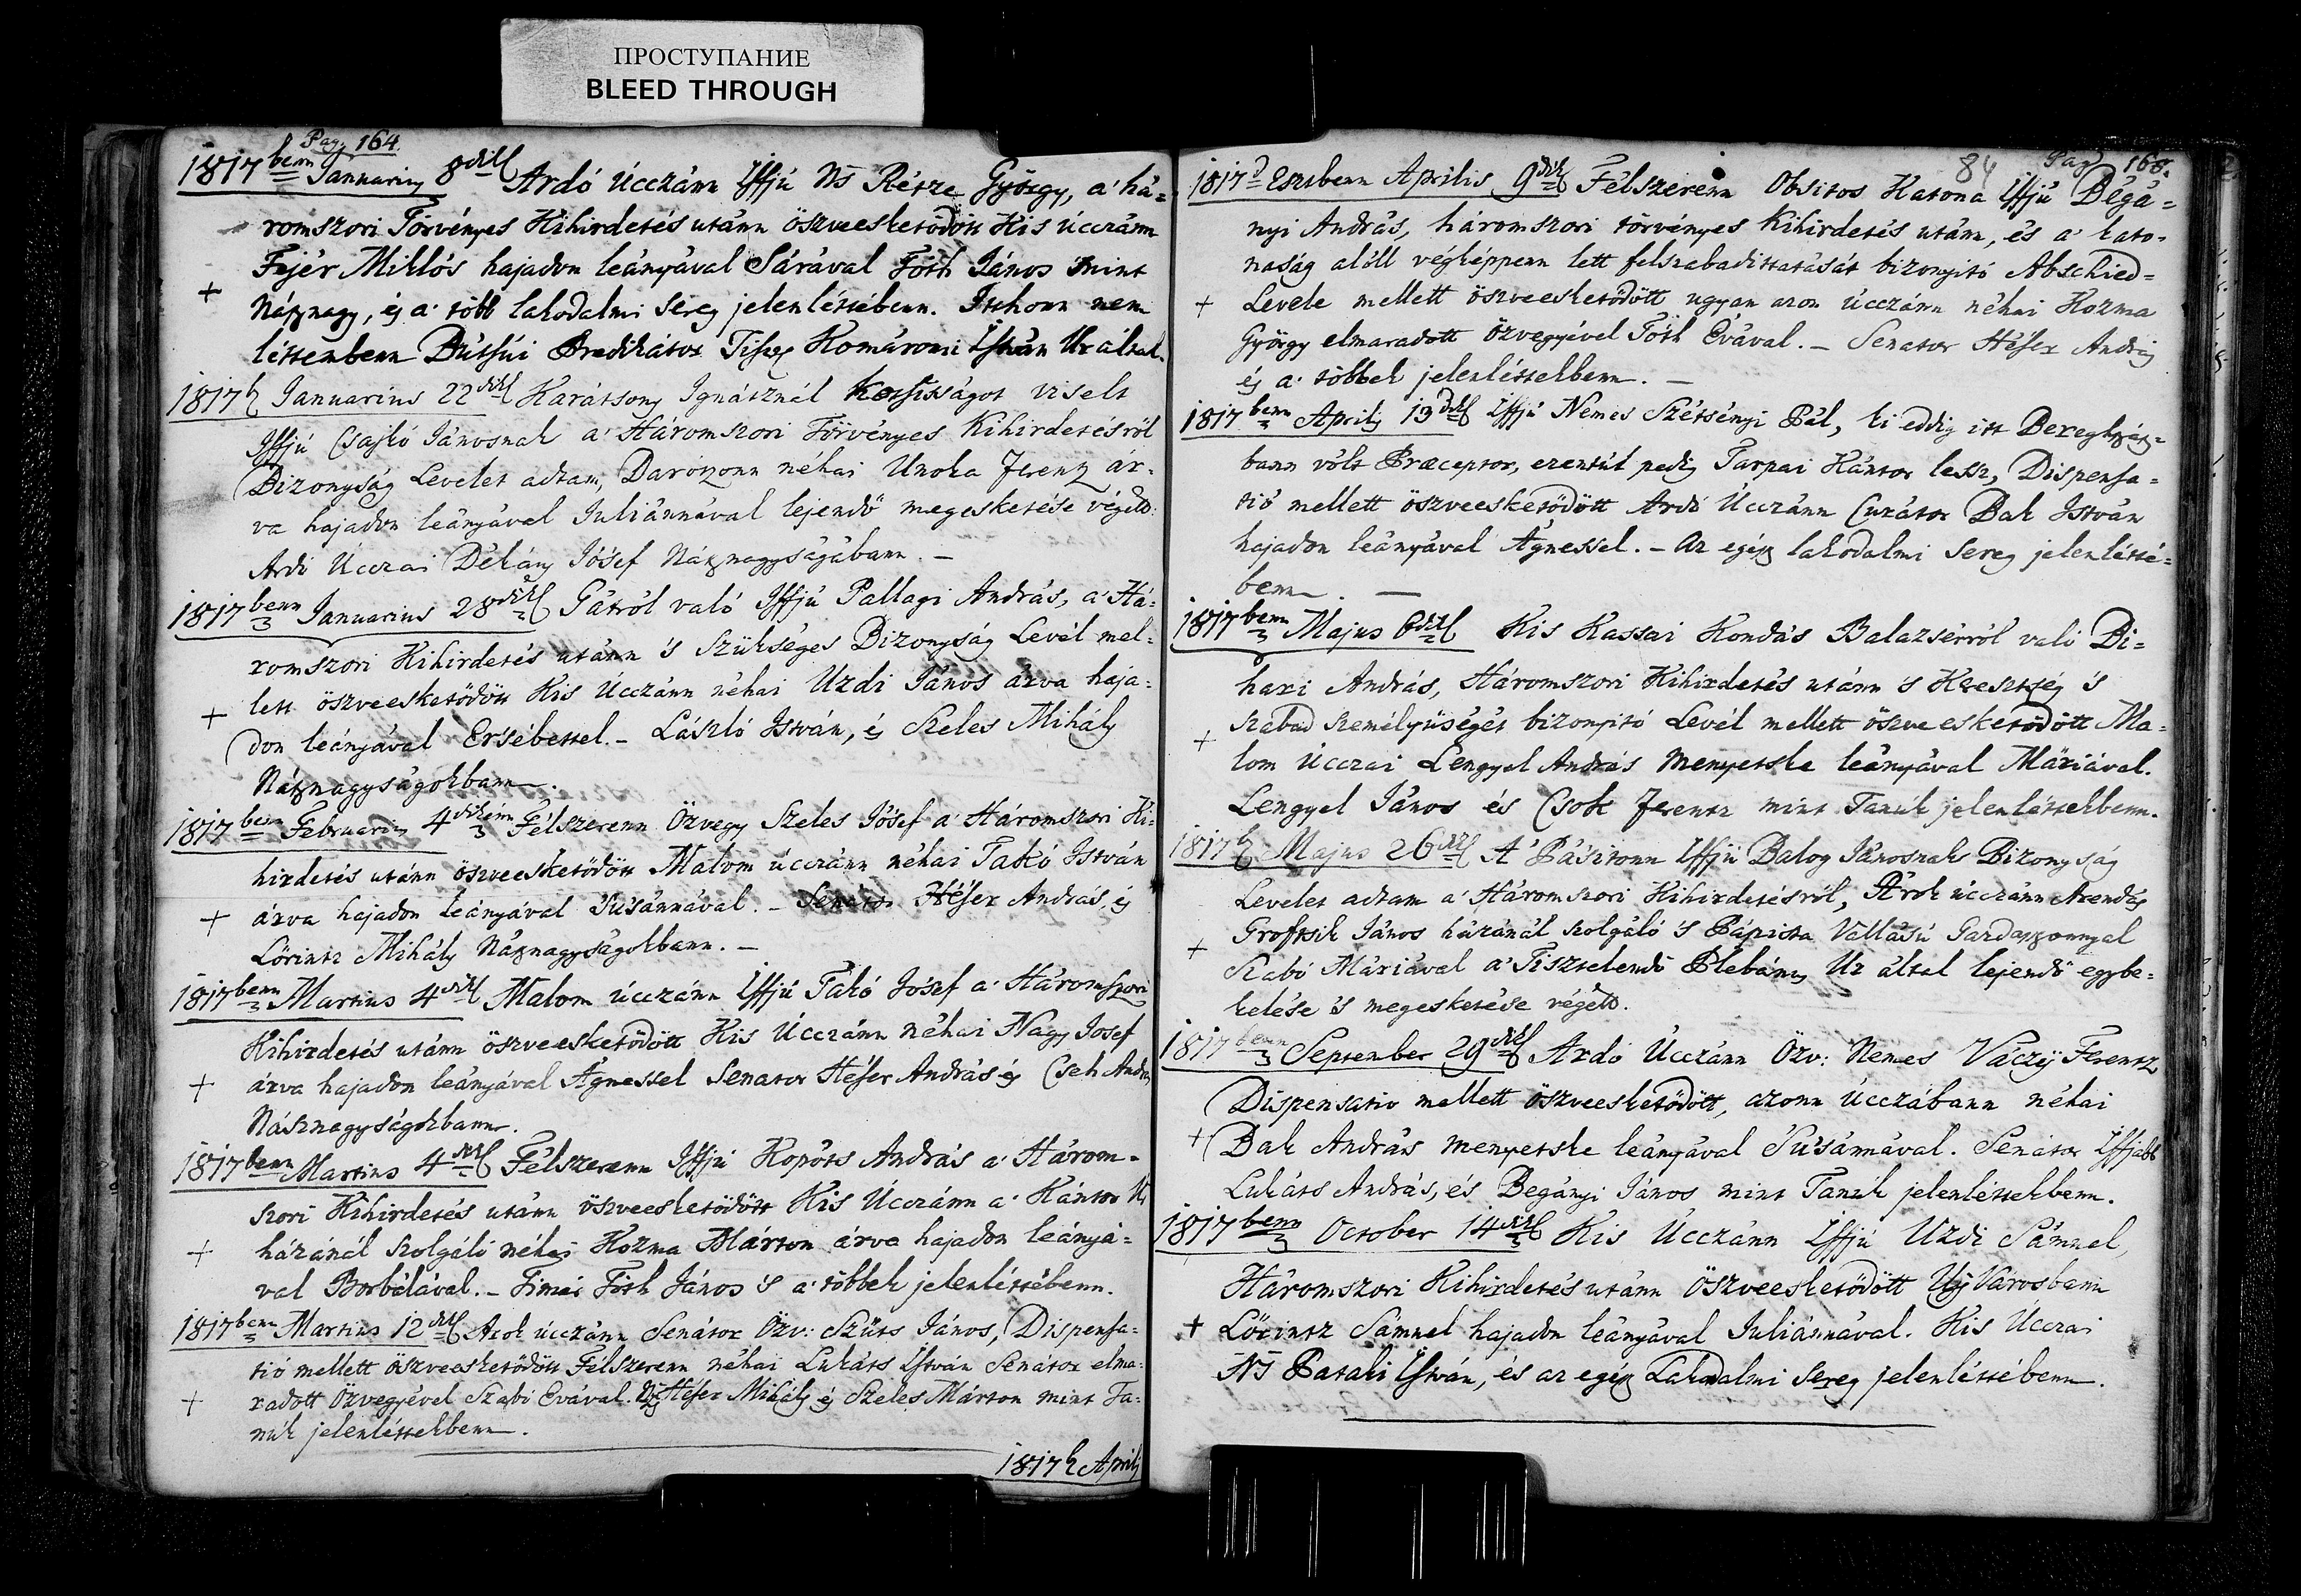 ПРОСТУПАНИЕ
BLEED THROUGH
Pag. 164.
1817benn Januarius 8dik Ardó Úcczánn Iffjú Ns Része György, a' há=
romszori Törvényes Kihirdetés utánn öszveesketödött Kis Úcczánn
Fejér Miklós hajadon leányával Sárával Tóth János mint
+ Násznagy, és a' több lakodalmi sereg jelenléttébenn. Itthonn nem
léttembenn Bútsúi Predikátor Tiszt Komáromi István Ur által.
1817b Januarius 22dik Karátsony Ignátznál kotsisságot viselt
Iffjú Csajkó Jánosnak a' Háromszori Törvényes Kihirdetésről
Bizonyság Levelet adtam, Darótzonn néhai Unoka Ferentz ár=
va hajadon leányával Juliánnával lejendő megesketése végett.
Ardó Úcczai Dékány Jósef Násznagyságábann. —
1817benn Januarius 28dik Gátról való Iffjú Pallagi András, a' Há=
romszori Kihirdetés utánn 's Szükséges Bizonyság Levél mel=
+ lett öszveesketödött Kis Úcczánn néhai Uzdi János árva haja=
don leányával Ersébettel. — László István, és Szeles Mihály
Násznagyságokbann.
1817benn Februarius 4dikénn Félszerenn Özvegy Szeles Jósef a' Háromszori Ki=
hirdetés utánn öszveesketödött Malom úcczánn néhai Takó István
+ árva hajadon leányával Susánnával. — Senátor Héser András, és
Lörintz Mihály Násznagyságokbann. —
1817benn Martius 4dik Malom úcczánn Iffjú Takó Josef a' Háromszori
Kihirdetés utánn öszveesketödött Kis Úcczánn néhai Nagy Josef
+ árva hajadon leányával Ágnessel Senator Héser András és Cseh András
Násznagyságokbann.
1817benn Martius 4dik Félszerenn Iffjú Kopóts András a' Három=
szori Kihirdetés utánn öszveesketödött Kis Úcczánn a' Kántor Ur
+ házánál szolgáló néhai Kozma Márton árva hajadon leányá=
val Borbálával. — Timái Tóth János 's a' többek jelenléttébenn.
1817benn Martius 12dik Árok úcczánn Senátor Özv: Szüts János, Dispensa=
tió mellett öszveesketödött Félszerenn néhai Lukáts István Senátor elma=
+ radott Özvegyével Szabó Évával. Héser Mihály és Szeles Márton mint Ta=
núk jelenléttekbenn.
1817b Aprilis
84 Pag 165.
1817d Eszt.benn Aprilis 9dik Félszerenn Obsitos Katona Iffjú Bégá=
nyi András, háromszori törvényes kihirdetés utánn, és a' kato=
naság alóll végképpenn lett felszabadittatását bizonyitó Abschied=
+ Levele mellett öszveesketödött ugyan azon úcczánn néhai Kozma
György elmaradott özvegyével Tóth Évával. — Senator Héser András
és a' többek jelenléttekbenn. —
1817benn Aprilis 13dik Iffjú Nemes Szétsényi Pál, ki eddig itt Beregszász=
bann vólt Praeceptor, ezentúl pedig Tarpai Kántor lessz, Dispensa=
tió mellett öszveesketödött Ardó Úcczánn Curátor Bak István
hajadon leányával Ágnessel. — Az egész lakodalmi sereg jelenlétté=
benn. —
1817benn Majus 6dik Kis Kassai Kondás Balazsérról való Bi=
hari András, Háromszori Kihirdetés utánn 's Keresztség 's
+ szabad személyiségét bizonyitó Levél mellett öszveesketödött Ma=
lom Úcczai Lengyel András menyetske leányával Máriával.
Lengyel János és Csok Ferentz mint Tanúk jelenléttekbenn.
1817b Majus 26dik A' Pásitonn Iffjú Balog Jánosnak Bizonyság
Levelet adtam a' Háromszori Kihirdetésről, Árok úcczánn Arendás
+ Groftsik János házánál szolgáló 's Pápista Vallású Gazdaszonnyal
Szabó Máriával a' Tisztelendő Plebánus Ur által lejendő egybe=
kelése 's megesketése végett.
1817benn September 29dik Ardó Úcczánn Özv: Nemes Váczij Ferentz
Dispensatio mellett öszveesketödött, azonn úcczábann néhai
+ Bak András menyetske leányával Susánnával. Senátor Iffjabb
Lukáts András, és Begányi János mint Tanúk jelenléttekbenn.
1817benn October 14dik Kis Úcczánn Iffjú Uzdi Sámuel,
Háromszori Kihirdetés utánn öszveesketödött Uj Városbann
+ Lörintz Sámuel hajadon leányával Juliánnával. Kis Úczai
Ns Pataki István, és az egész Lakodalmi sereg jelenléttébenn.